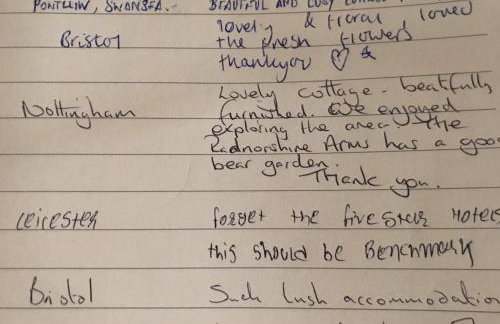 PONTLLIW, SWANSEA. BEAUTIFUL AND COSY
lovely & floral loved
Bristol the fresh flowers
thankyou ♡ &
Lovely cottage - beatfully
Nottingham furnished. We enjoyed
exploring the area. The
Radnorshire Arms has a goo
bear garden.
Thank you.
Leicester forget the five star Hotels
this should be BENCHMARK
Bristol Such lush accommodation